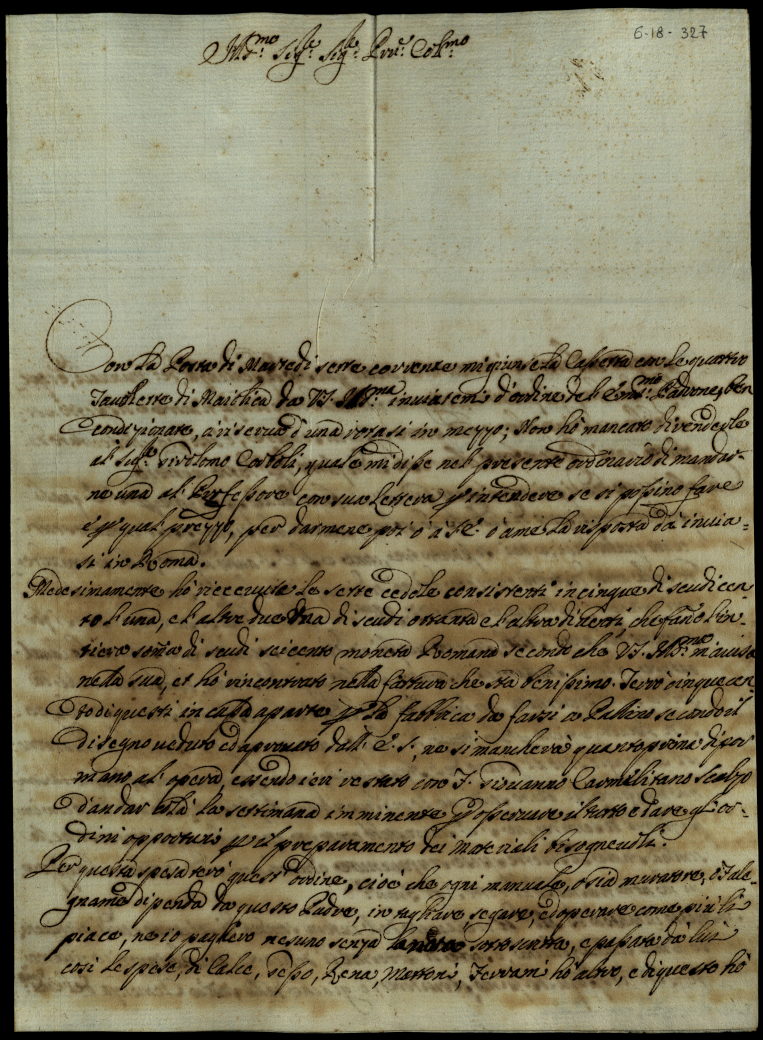 6-18-327
Ill.mo Sig.re Sig.re Pron.e Col.mo
Con la Posta di Martedi sette corrente mi giunse la Cassetta con le quattro
di Maiolica da VS. Ill.ma inviatemi d'ordine del E.mo Padrone, ben
condizionate, à riserva d'una in mezzo; Non hò mancato di vederle
al Sig.re Corboli, quale mi disse nel presente ordinario di mandar-
ne una al Professore con sua lettera p intendere se si possino fare
è p qual prezzo, per darmene poi ò à S.E. ò à me la risposta da invia-
si in Roma.
Medesimamente hò ricevuto le sette cedole consistenti in cinque di scudi cen
to l'una, e l'altre due una di scudi ottanta e l'altra di venti, che fano l'in-
tiera soma di scudi seicento moneta Romana secondo che VS. Ill.ma m'avisa
nella sua, et hò rincontrato nella fattura che stà benissimo. Terrò cinquecen
to di questi in cassa aparte p la fabbrica da farsi a Pallino secondo il
disegno veduto ed aprovato dall' E.S., ne si mancherà quanto prima di por
mano al' opera, essendo ieri restato con Giovanno Carmelitano Scalzo
d'andar colà la settimana imminente p osservare il tutto e dare gl'or-
dini opportuni p il preparamento dei materiali bisognevoli.
Per questa spesa terò quest' ordine, cioè che ogni manuale, o sia muratore, ò Fale
gname dipenda da questo Padre, in tagliare, segare, ed operare come più li
piace, ne io pagherò nesuno senza la sottoscritta, e passata dà lui
così le spese, di Calce, Gesso, Rena, Mattoni, Ferrami hò altro, e di questo hò